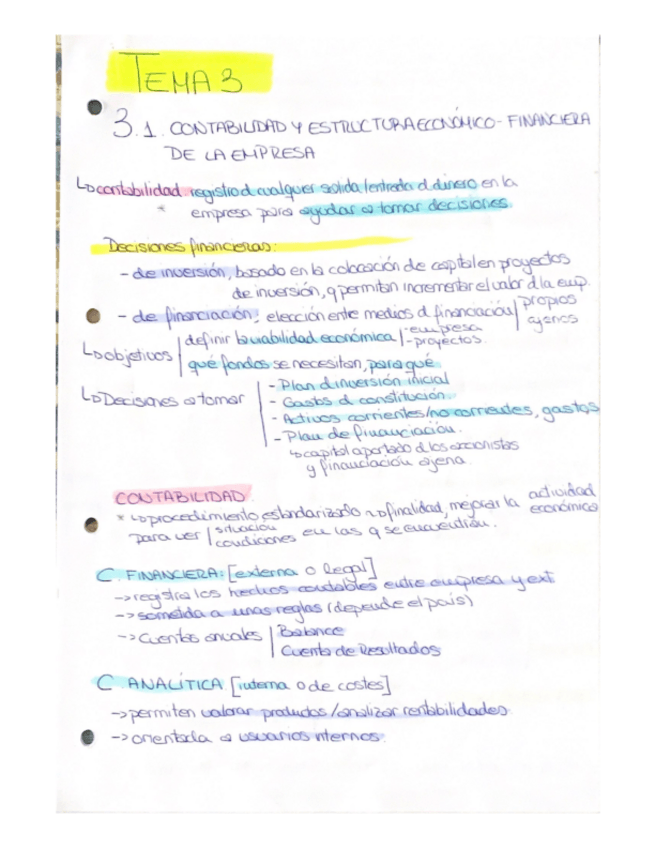 TEMA 3
3.1. CONTABILIDAD Y ESTRUCTURA ECONÓMICO-FINANCIERA
DE LA EMPRESA
↳contabilidad registro d cualquier salida/entrada d dinero en la
* empresa para ayudar a tomar decisiones.
Decisiones financieras:
- de inversión, basado en la colocación de capital en proyectos
de inversión, q permitan incrementar el valor d la emp.
- de financiación, elección ente medios d financiación | propios
ajenos
↳objetivos | definir la viabilidad económica | - empresa
- proyectos.
qué fondos se necesitan, para qué
↳Decisiones a tomar | - Plan d inversión inicial
- Gastos d constitución.
- Activos corrientes/no corrientes, gastos
- Plan de financiación.
↳capital aportado d los accionistas
y financiación ajena.
CONTABILIDAD.
* ↳procedimiento estandarizado ↝ finalidad, mejorar la actividad
económica
para ver | situación
condiciones en las q se encuentran.
C. FINANCIERA: [externa o legal]
-> registra los hechos contables entre empresa y ext
-> sometida a unas reglas (depende el país)
-> cuentas anuales | Balance
Cuenta de Resultados
C. ANALÍTICA [interna o de costes]
-> permiten valorar productos/analizar rentabilidades.
-> orientada a usuarios internos.